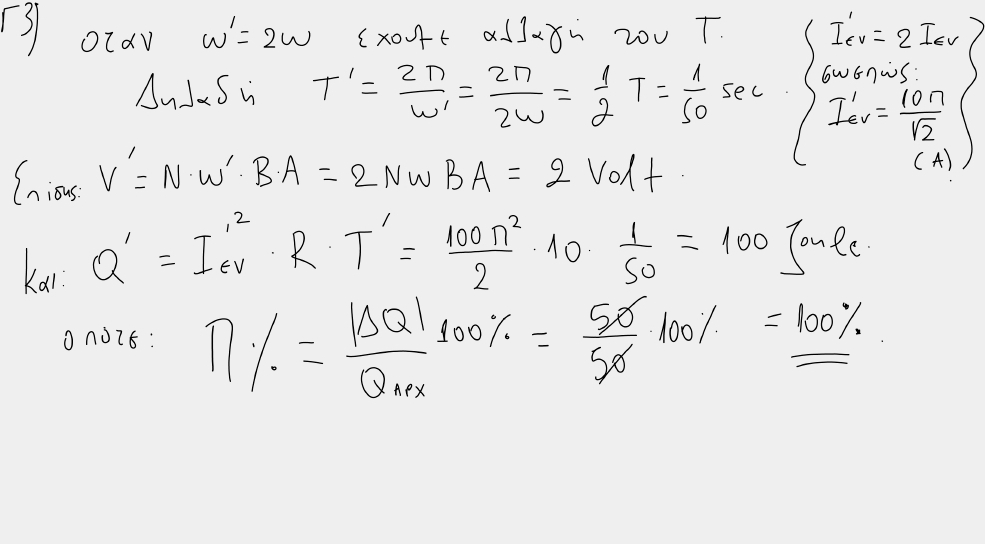 Γ3) οταν ω' = 2ω εχουμε αλλαγή του T.
Δηλαδή T' = 2π/ω' = 2π/2ω = 1/2 T = 1/50 sec.
{ I'εν = 2 Iεν
συνεπώς:
I'εν = 10π/√2
(A) }
Επισης: V' = N·ω'·B·A = 2NωBA = 2 Volt.
και: Q' = I'εν² · R · T' = 100π²/2 · 10 · 1/50 = 100 Joule.
οποτε: Π% = |ΔQ|/Qαρχ 100% = 50/50 · 100% = 100%.